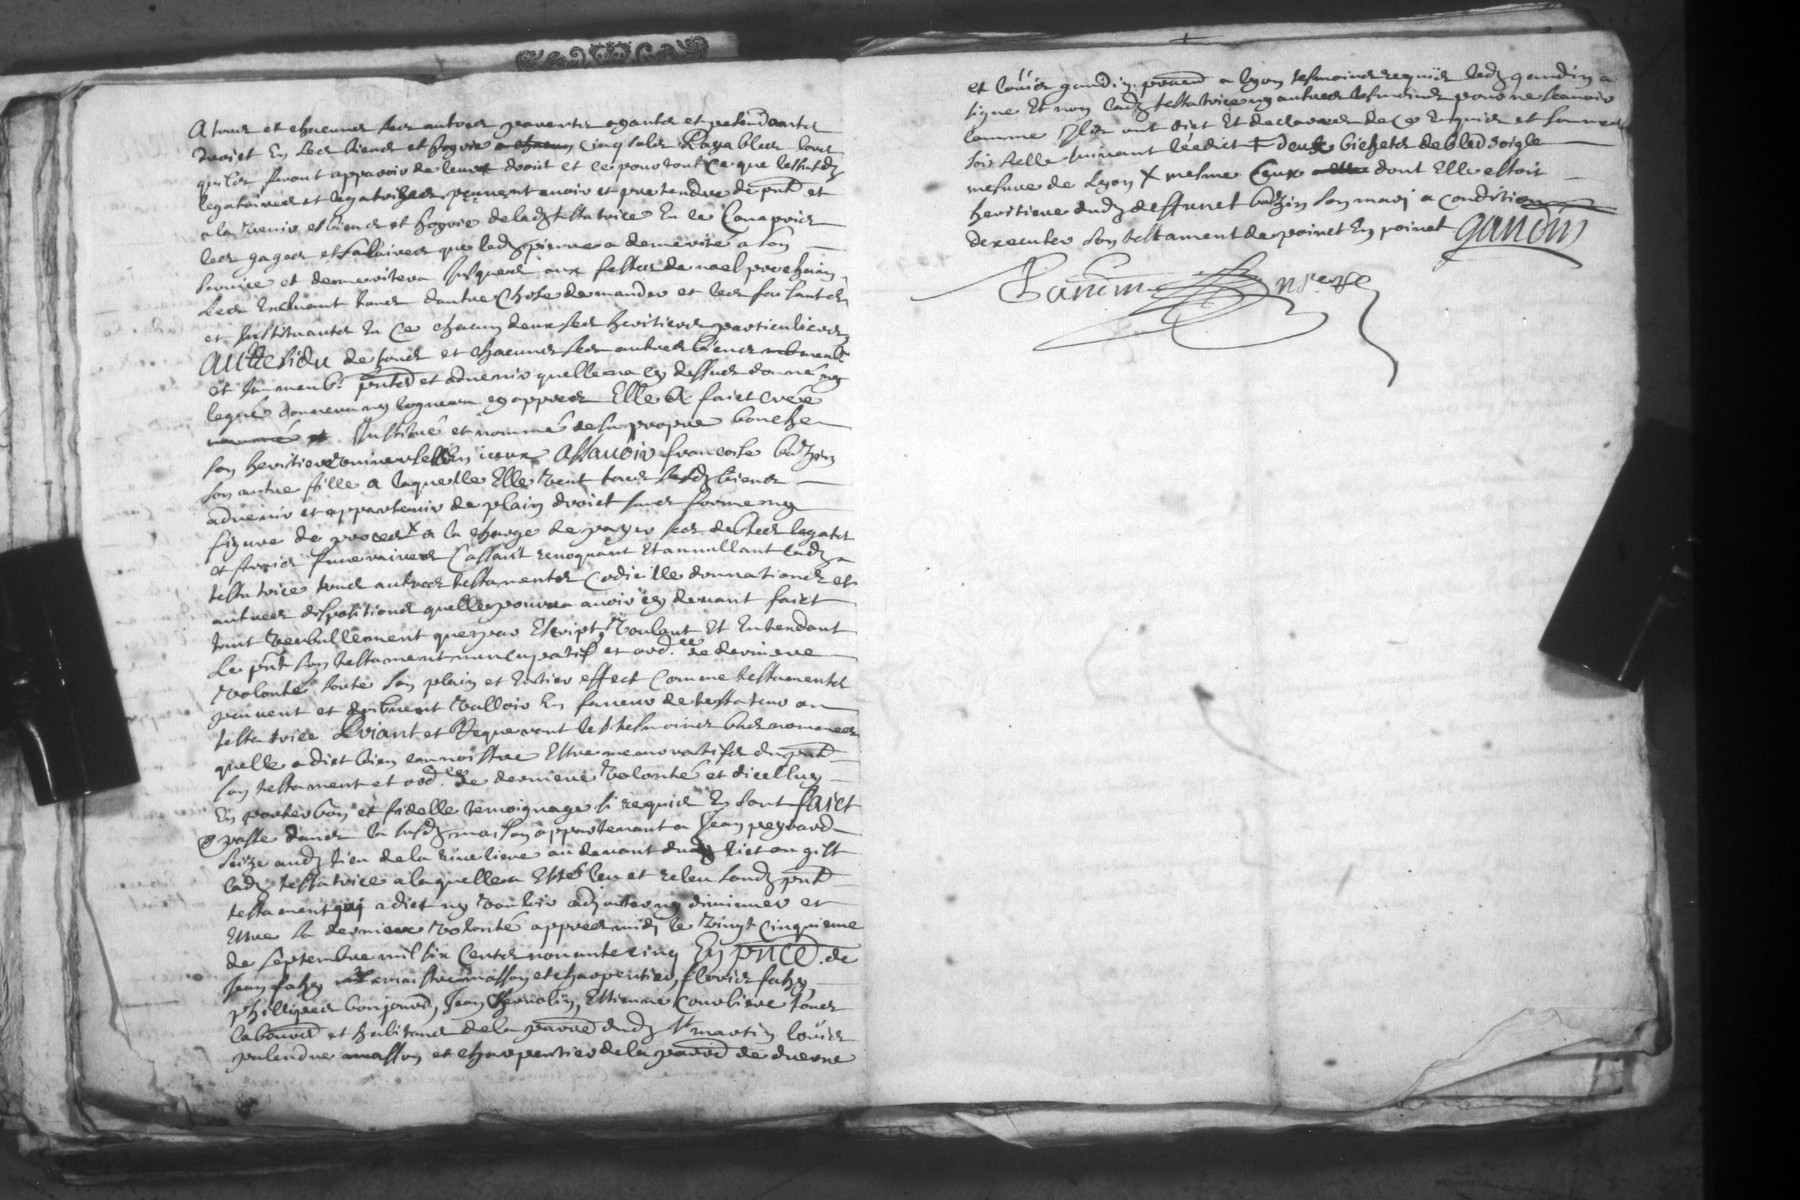 A tous et chacuns ses autres parents ayants et pretendants
droict En ses biens et hoyrie cinq sols Payables lors
quilz feront apparoir de leurs droit et ce pour tout ce que lesd
legataires et legatrices peuvent avoir et pretendre de pnt et
a ladvenir es biens et hoyrie de ladz testatrice En ce Compris
les gages et sallaires que ladz pierre a demerité a son
service et demeritera jusques aux festes de noel prochain
Les Excluant tous dautre Chose demander et les faisant
et Instituants En ce chacun deux ses heritiers particuliers
Au Residu de tous et chacuns ses autres biens meub
et Immeub. pnts et advenir quelle na cy dessus donné ny
legué donnera ny leguera cy appres Elle A faict créé
Institué et nommé de sa propre bouche
son heritiere universelle Assavoir francoise
son autre fille a laquelle Elle veut tous sesdz biens
advenir et appartenir de plain droict sans forme ny
figure de proces a la charge de payer ses debtes legats
et frais funeraires Cassant revoquant Et annullant ladz
testatrice tous autres testaments Codicille donnations et
autres dispositions quelle pourra avoir cy devant faict
tant verballement que par Escript, Voulant Et Entendant
Le pnt son testament nuncupatif et ord.ce de derniere
volonté sorte son plain et Entier effect Comme testaments
peuvent et doibvent valloir En faveur de testateur ou
testatrice Priant et Requerant les tesmoings bas nommes
quelle a dict bien connoistre Estre memoratifs du pnt
son testament et ord.ce de derniere volonté et dicelluy
En porter bon et fidelle temoignage si requis En sont faict
& passé dans la susdz maison appartenant a Jean peyrard
Size audz lieu de la riveliere au devant dudz lict ou gist
ladz testatrice a laquelle a Esté leu et releu sondz pnt
testament qui a dict ny vouloir adjouter ny diminuer et
Estre sa derniere volonté appres midy le vingt cinquieme
de septembre mil six Cents nonante cinq En pnce. de
Jean fahy maistre masson et charpentier, Clovis fahy,
phillipes bonjour, Jean Essiene Courbiere tous
labours et habitans de la parroe dudz St martin louis
palendre masson et charpentier de la parroe de duerne
et louis gaudin. prad a lyon tesmoins requis ledz gaudin a
signe Et non ladz testatrice ny autres tesmoins pour ne scavoir
comme Ilz ont dict Et declarer de ce Enquis et sommes
soit selle suivant leedict + deux bichets de bled soigle
mesure de Lyon X mesme Ceux dont Elle estoit
heritiere dudz deffunct son mary a condition
dexecuter son testament de poinct En poinct gaudin